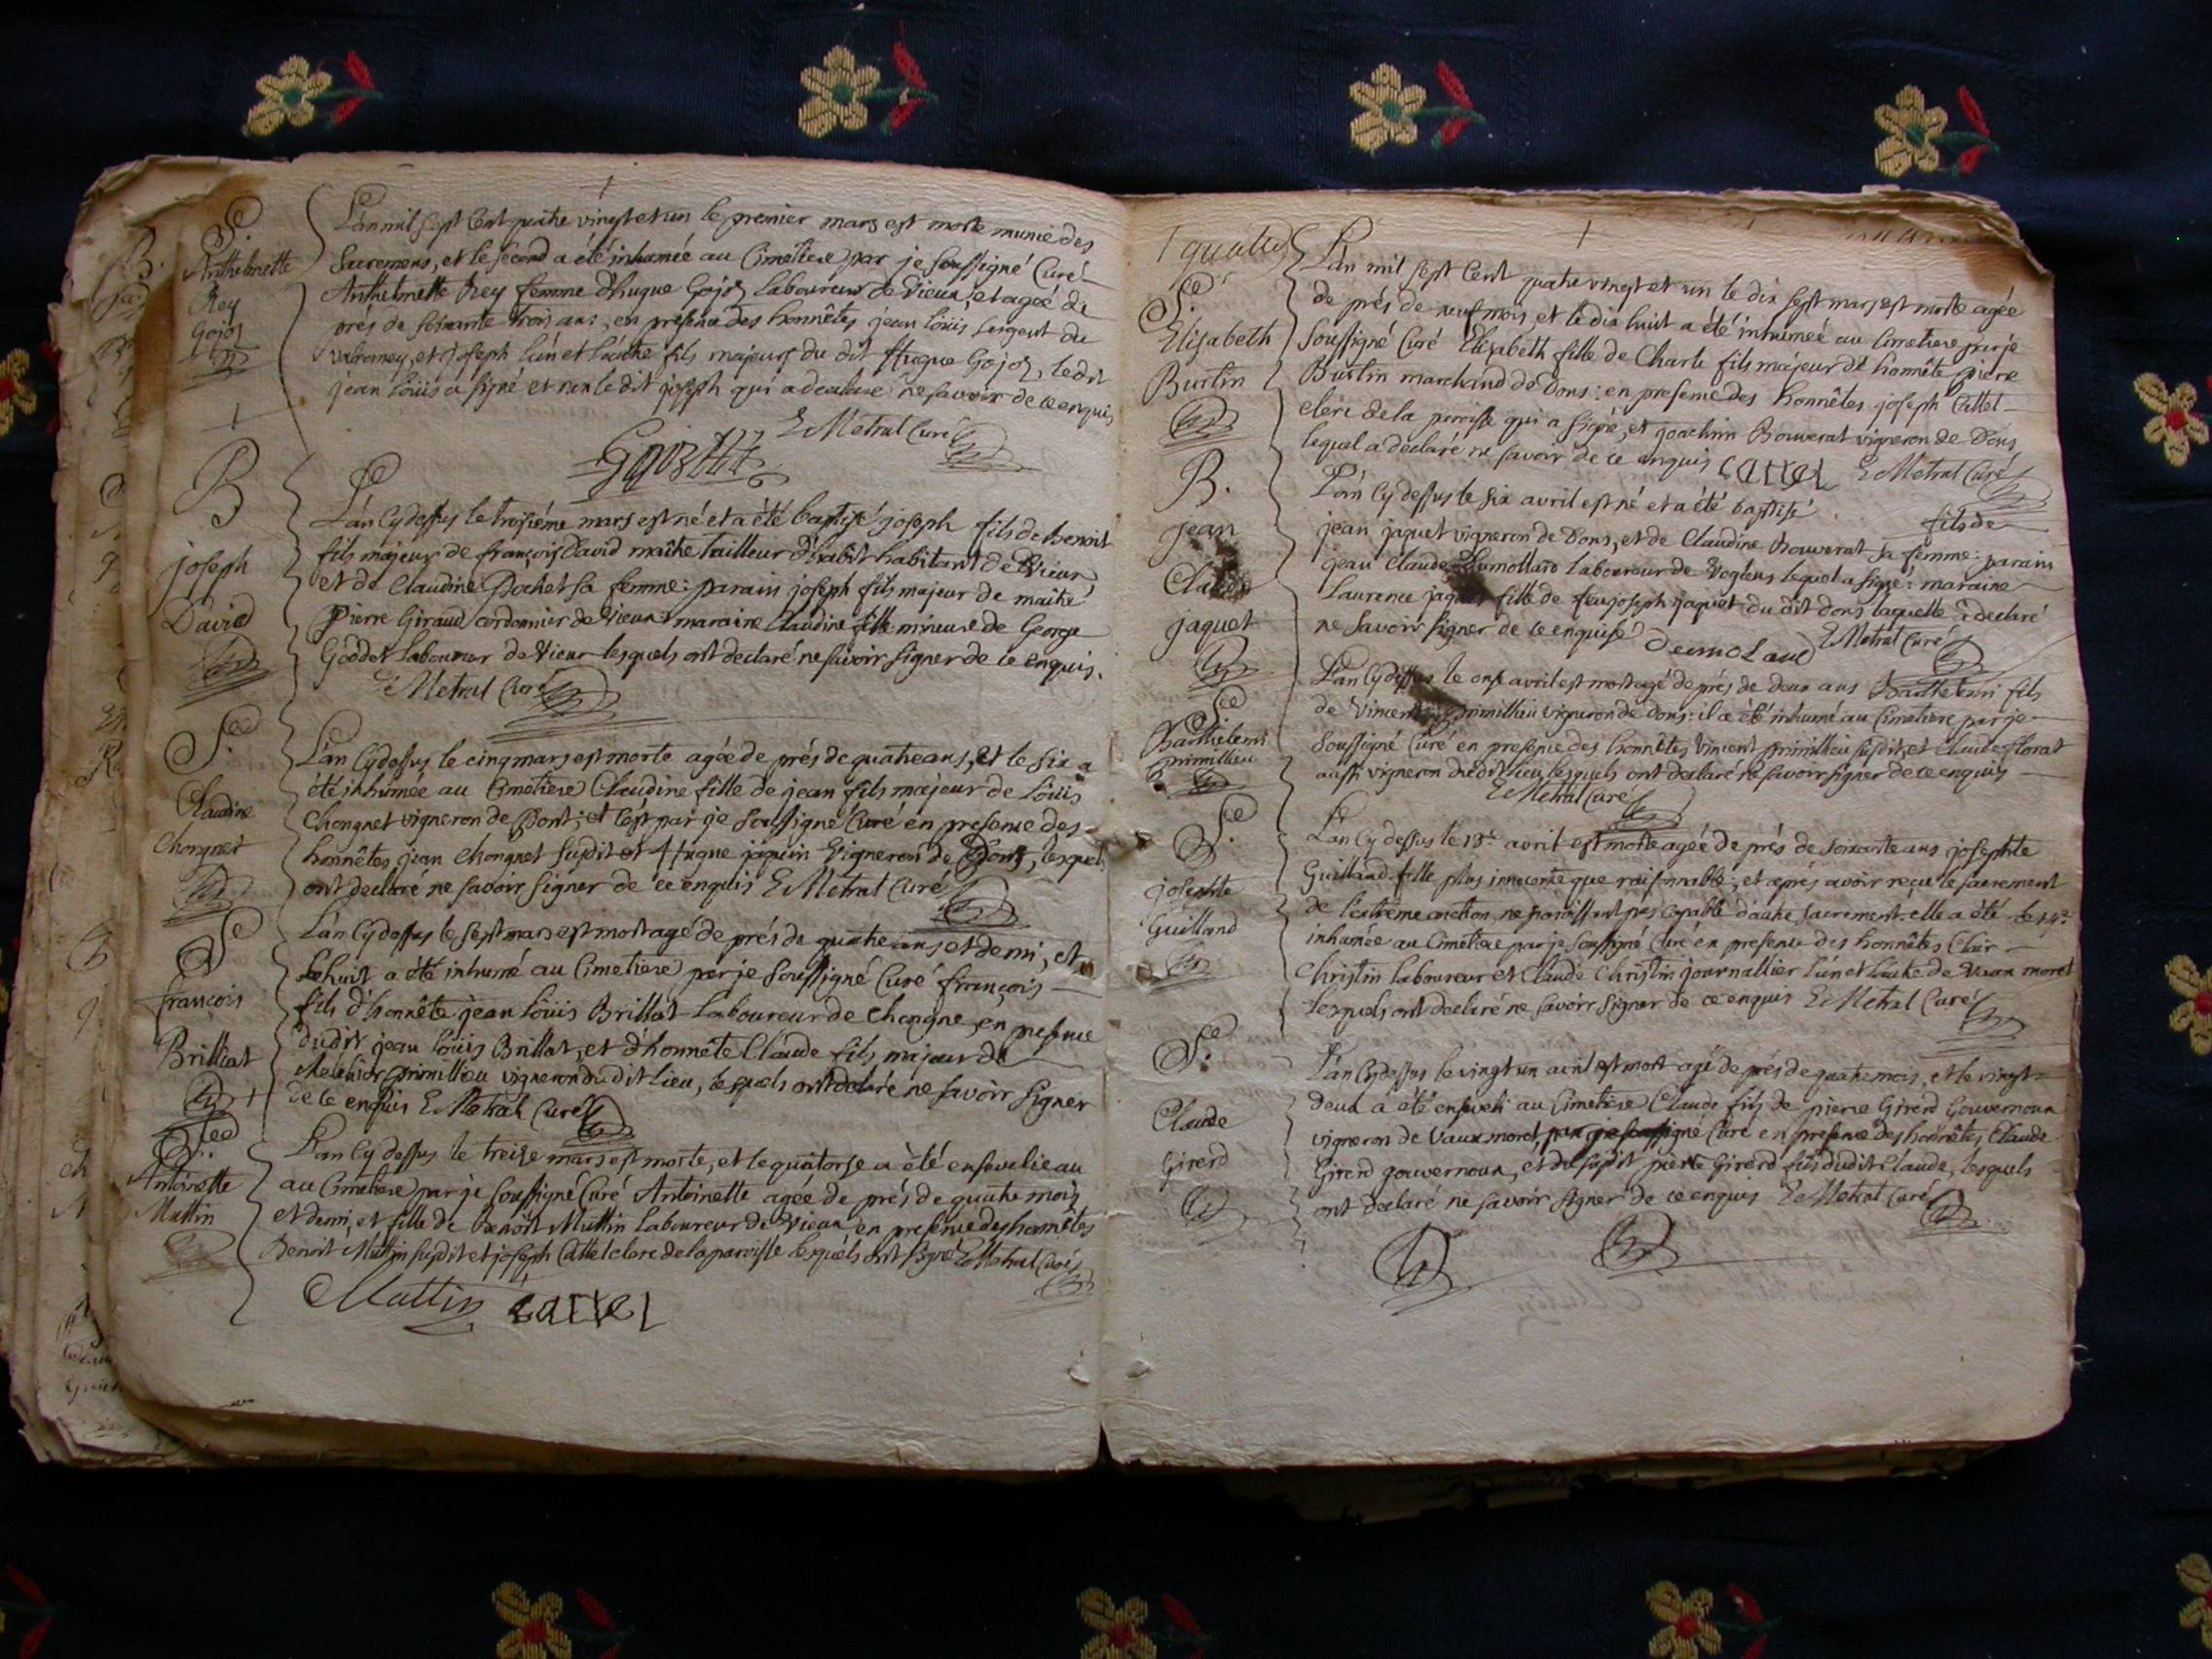 Sre
Anthelmette
Rey
Gojoz
L'an mil sept cent quatre vingt et un le premier mars est morte munie des
Sacremens, et le second a été inhumée au Cimetiere par je soussigné Curé
Anthelmette Rey femme d'hugue Gojoz laboureur de Vieux, et agée de
prés de soixante trois ans, en presence des honnêtes jean loüis sergent du
valromey, et joseph l'un et l'autre fils majeurs du dit hugue Gojoz, ledit
jean loüis a signé et non le dit joseph qui a declaré ne savoir de ce enquis
E Metral Curé
B
joseph
David
L'an cy dessus le troisiéme mars est né et a été baptisé joseph fils de benoit
fils majeur de françois David maître tailleur d'habit habitant de Vieux
et de Claudine Bochet sa femme: parain joseph fils majeur de maître
Pierre Giraud cordonnier de Vieux: maraine Claudine fille mineure de George
Goddet laboureur de Vieux lesquels ont declaré ne savoir signer de ce enquis.
E Metral Curé
Sre
Claudine
Chongnet
L'an cy dessus le cinq mars est morte agée de prés de quatre ans, et le six a
été inhumée au Cimetiere Claudine fille de jean fils majeur de Loüis
Chongnet vigneron de Dons; et c'est par je soussigné Curé en presence des
honnêtes jean Chongnet susdit et Hugue jaquin Vigneron de Dons, lesquels
ont declaré ne savoir signer de ce enquis E Metral Curé
Sre
françois
Brillat
L'an cy dessus le sept mars est mort agé de prés de quatre ans et demi, et
le huit a été inhumé au Cimetiere par je Soussigné Curé françois
fils d'honnête jean loüis Brillat Laboureur de Chongne, en presence
dudit jean loüis Brillat, et d'honnête Claude fils majeur de
Melchior primillieu vigneron du dit lieu, lesquels ont declaré ne savoir signer
de ce enquis E Metral Curé
Sre
Antoinette
Muttin
L'an cy dessus le treize mars est morte, et le quatorse a été ensevelie au
au Cimetiere par je soussigné Curé Antoinette agée de prés de quatre mois
et demi, et fille de benoit Muttin laboureur de Vieux en presence des honnêtes
Benoit Muttin susdit et joseph Cattel clerc de la paroisse lesquels ont signé E Metral Curé
Muttin cattel
quatre
Sre
Elisabeth
Burtin
L'an mil sept cent quatre vingt et un le dix sept mars est morte agée
de prés de neuf mois, et le dix huit a été inhumée au Cimetiere par je
Soussigné Curé Elizabeth fille de Charle fils majeur de honnête pierre
Burtin marchand de Dons: en presence des honnêtes joseph Cattel
clerc de la paroisse qui a signé, et joachim Bouverat vigneron de Dons
lequel a declaré ne savoir de ce enquis cattel E Metral Curé
B.
jean
Claude
jaquet
L'an cy dessus le six avril est né et a été baptisé fils de
jean jaquet vigneron de Dons, et de Claudine Bouverat sa femme: parain
jean Claude Dumollard laboureur de Voglens lequel a signé: maraine
Laurence jaquet fille de feu joseph jaquet du dit dons laquelle a declaré
ne savoir signer de ce enquise Dumolard E Metral Curé
Sre
Barthelemi
primillieu
L'an cy dessus le onse avril est mort agé de prés de deux ans Barthelemi fils
de Vincent primillieu vigneron de dons: il a été inhumé au Cimetiere par je
Soussigné Curé en presence des honnêtes Vincent primillieu susdit, et Claude florat
aussi vigneron du dit lieu lesquels ont declaré ne savoir signer de ce enquis
E Metral Curé
Sre
josephte
Guilland
L'an cy dessus le 13e avril est morte agée de prés de soixante ans josephte
Guilland fille plus innocente que raisonnable, et après avoir reçu le sacrement
de l'extrême onction, ne paroissant pas capable d'autre sacrement. elle a été le 14e
inhumée au Cimetiere par je soussigné Curé en presence des honnêtes Clair
Christin laboureur et Claude Christin journallier l'un et l'autre de Vaux moret
lesquels ont declaré ne savoir signer de ce enquis E Metral Curé
Sre
Claude
Girerd
L'an cy dessus le vingt un avril est mort agé de prés de quatre mois, et le vingt
deux a été enseveli au Cimetiere Claude fils de pierre Girerd Gouvernoux
vigneron de Vaux moret, par je soussigné Curé en presence des honnêtes Claude
Girerd gouvernoux, et du susdit pierre Girerd fils dudit Claude, lesquels
ont declaré ne savoir signer de ce enquis E Metral Curé